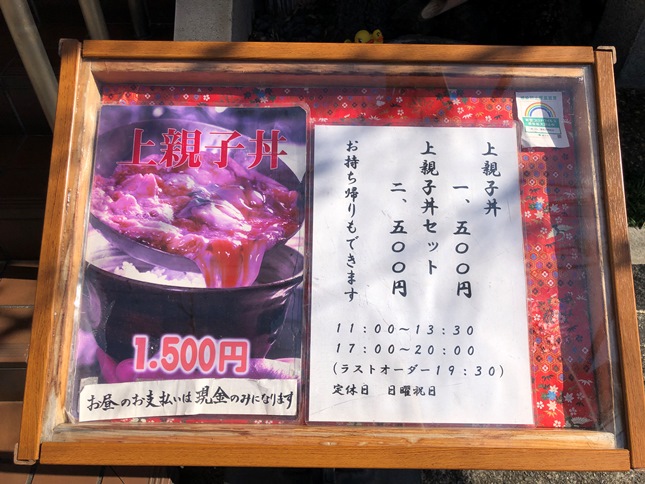 上親子丼
1.500円
お昼のお支払いは現金のみになります
上親子丼
一、五〇〇円
上親子丼セット
二、五〇〇円
お持ち帰りもできます
11：00～13：30
17：00～20：00
(ラストオーダー19：30)
定休日　日曜祝日